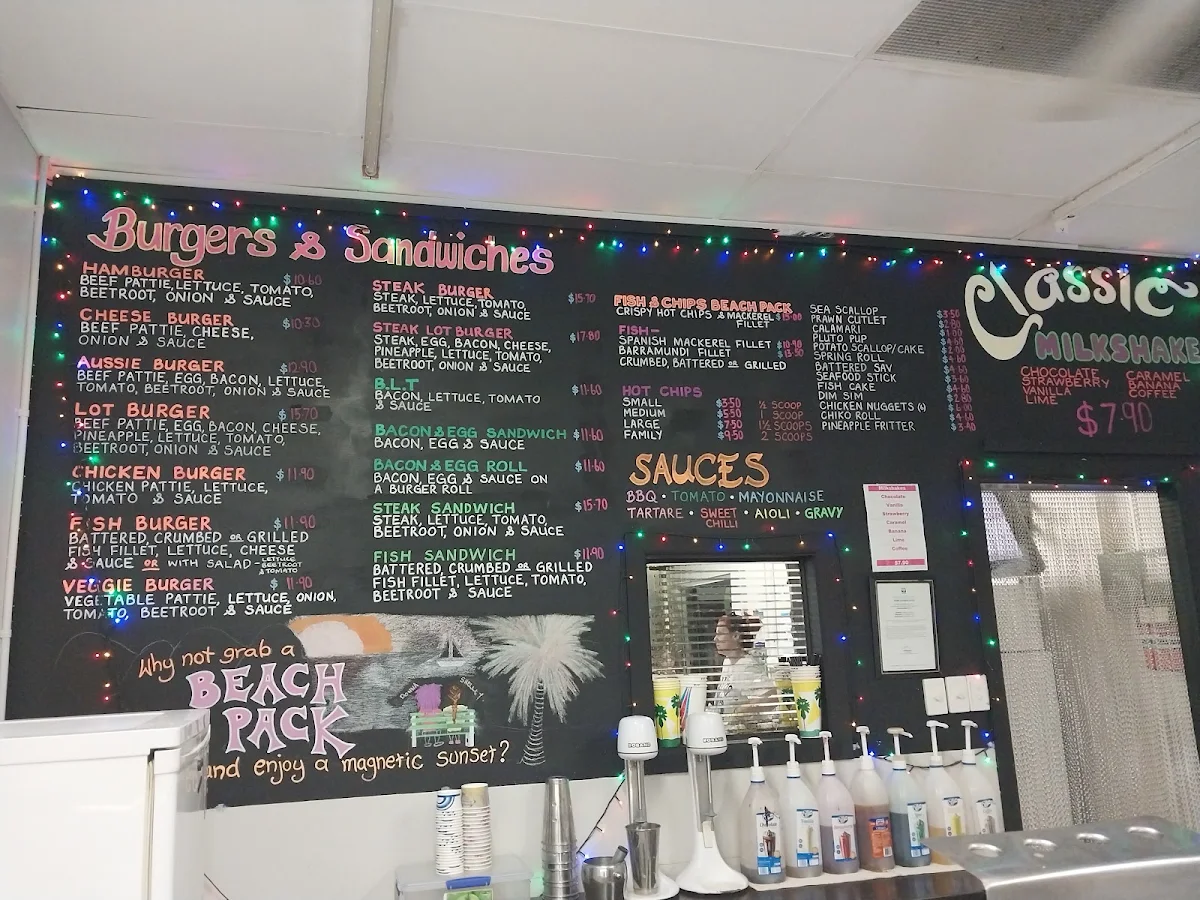 Burgers & Sandwiches
HAMBURGER $10.60
BEEF PATTIE, LETTUCE, TOMATO,
BEETROOT, ONION & SAUCE
CHEESE BURGER $10.30
BEEF PATTIE, CHEESE,
ONION & SAUCE
AUSSIE BURGER $12.90
BEEF PATTIE, EGG, BACON, LETTUCE,
TOMATO, BEETROOT, ONION & SAUCE
LOT BURGER $15.70
BEEF PATTIE, EGG, BACON, CHEESE,
PINEAPPLE, LETTUCE, TOMATO,
BEETROOT, ONION & SAUCE
CHICKEN BURGER $11.90
CHICKEN PATTIE, LETTUCE,
TOMATO & SAUCE
FISH BURGER $11.90
BATTERED, CRUMBED OR GRILLED
FISH FILLET, LETTUCE, CHEESE
& SAUCE OR WITH SALAD - LETTUCE
BEETROOT
& TOMATO
VEGGIE BURGER $11.90
VEGETABLE PATTIE, LETTUCE, ONION,
TOMATO, BEETROOT & SAUCE
STEAK BURGER $15.70
STEAK, LETTUCE, TOMATO,
BEETROOT, ONION & SAUCE
STEAK LOT BURGER $17.80
STEAK, EGG, BACON, CHEESE,
PINEAPPLE, LETTUCE, TOMATO,
BEETROOT, ONION & SAUCE
B.L.T $11.60
BACON, LETTUCE, TOMATO
& SAUCE
BACON & EGG SANDWICH $11.60
BACON, EGG & SAUCE
BACON & EGG ROLL $11.60
BACON, EGG & SAUCE ON
A BURGER ROLL
STEAK SANDWICH $15.70
STEAK, LETTUCE, TOMATO,
BEETROOT, ONION & SAUCE
FISH SANDWICH $11.90
BATTERED, CRUMBED OR GRILLED
FISH FILLET, LETTUCE, TOMATO,
BEETROOT & SAUCE
FISH & CHIPS BEACH PACK
CRISPY HOT CHIPS & MACKEREL
FILLET
FISH-
SPANISH MACKEREL FILLET $10.90
BARRAMUNDI FILLET
CRUMBED, BATTERED OR GRILLED
HOT CHIPS
SMALL $3.50 ½ SCOOP
MEDIUM $5.50 1 SCOOP
LARGE $7.50 1½ SCOOPS
FAMILY $9.50 2 SCOOPS
SEA SCALLOP $3.50
PRAWN CUTLET
CALAMARI
PLUTO PUP
POTATO SCALLOP/CAKE
SPRING ROLL
BATTERED SAV
SEAFOOD STICK
FISH CAKE
DIM SIM
CHICKEN NUGGETS
CHIKO ROLL
PINEAPPLE FRITTER
SAUCES
BBQ • TOMATO • MAYONNAISE
TARTARE • SWEET CHILLI • AIOLI • GRAVY
Classic
MILKSHAKE
CHOCOLATE CARAMEL
STRAWBERRY BANANA
VANILLA COFFEE
LIME
$7.90
Milkshakes
Chocolate
Vanilla
Strawberry
Caramel
Banana
Lime
Coffee
$7.90
Why not grab a
BEACH
PACK
and enjoy a magnetic sunset?